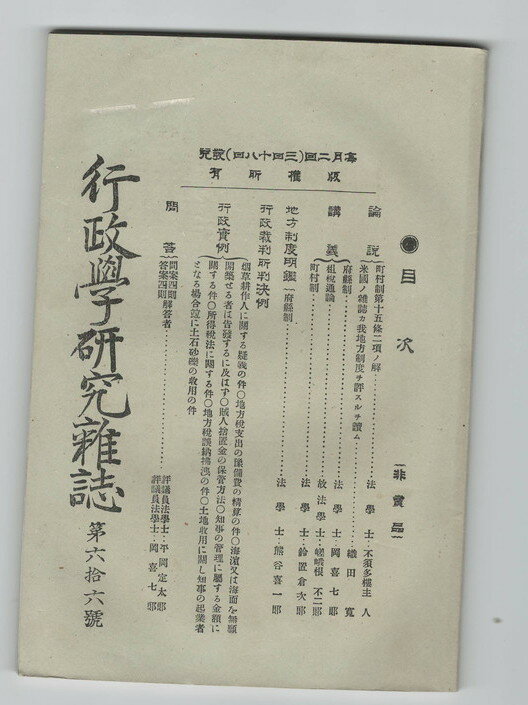 毎月二回(三四十八日)發兌
版權所有
目次
(非賣品)
論說
町村制第十五條二項ノ解……法學士…不須多樓主人
米國ノ雜誌カ我地方制度ヲ評スルヲ讀ム……織田寬
講義
府縣制……法學士…岡喜七郎
租稅通論……放法學士…嵯峨根不二郎
町村制……法學士…鈴置倉次郎
地方制度明鑑
府縣制……法學士…熊谷喜一郎
行政裁判所判決例
行政實例
烟草耕作人に關する疑義の件〇地方稅支出の豫備費の精算の件〇海濱又は海面を無願
開築せる者は告發するに及はす〇賊人捨置金の保管方法〇知事の管理に屬する金額に
關する件〇所得稅法に關する件〇地方稅誤納拂戾の件〇土地收用に關し知事の起業者
となる場合竝に土石砂礫の收用の件
問答
問案四則解答者……評議員法學士…平岡定太郎
答案四則……評議員法學士…岡喜七郎
行政學研究雜誌
第六拾六號